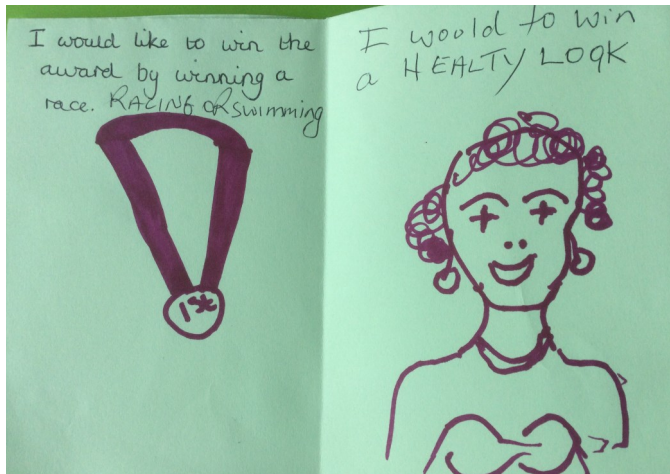 I would like to win the
award by winning a
race. RACING OR swimming
1st
I woold to win
a HEALTY LOOK